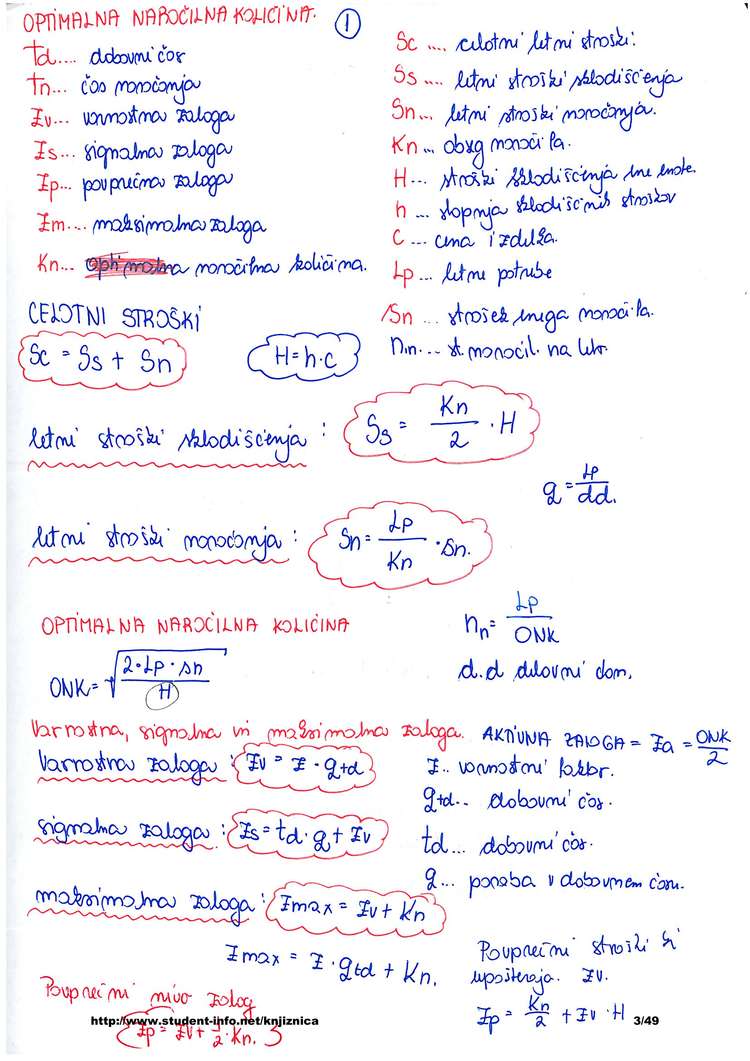 OPTIMALNA NAROČILNA KOLIČINA. 1
td.... dobavni čas
tn... čas naročanja
Zv... varnostna zaloga
Zs... signalna zaloga
Zp... povprečna zaloga
Zm.... maksimalna zaloga
Kn... naročilna količina.
Sc .... celotni letni stroški.
Ss .... letni stroški skladiščenja
Sn... letni stroški naročanja.
Kn... obseg naročila.
H... stroški skladiščenja ene enote.
h ... stopnja skladiščnih stroškov
C ... cena izdelka.
Lp ... letne potrebe
Sn ... strošek enega naročila.
Nn... št. naročil. na leto.
CELOTNI STROŠKI
Sc = Ss + Sn
H = h·c
letni stroški skladiščenja : Ss = Kn/2 · H
q = Lp/dd.
letni stroški naročanja : Sn = Lp/Kn · sn.
OPTIMALNA NAROČILNA KOLIČINA
nn = Lp/ONK
ONK = √(2·Lp·sn/H)
d.d delovni dan.
Varnostna, signalna in maksimalna zaloga.
AKTIVNA ZALOGA = Za = ONK/2
Varnostna zaloga : Zv = Z · qtd
Z.. varnostni faktor.
qtd.. dobavni čas.
signalna zaloga : Zs = td · q + Zv
td... dobavni čas.
q... poraba v dobavnem času.
maksimalna zaloga : Zmax = Zv + Kn
Zmax = Z · qtd + Kn.
Povprečni stroški ki
upoštevajo. Zv.
Zp = Kn/2 + Zv · H
Povprečni nivo zalog
http://www.student-info.net/knjiznica 3/49
Zp = Zv + 1/2 · Kn.